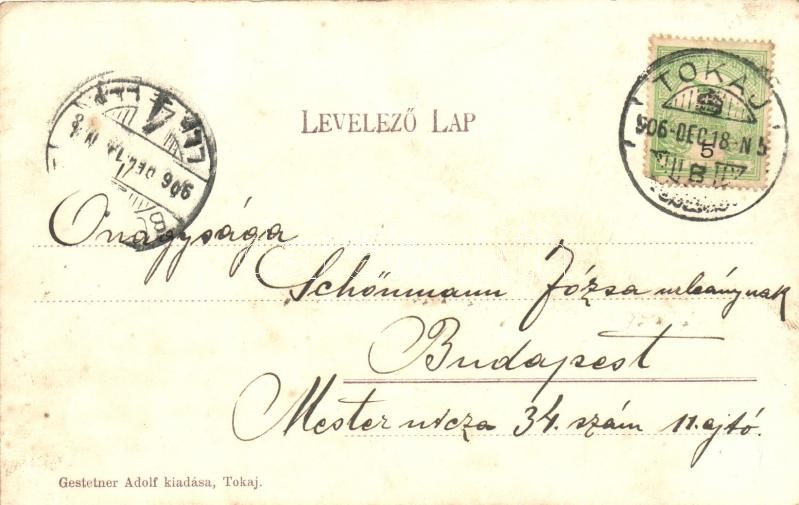 LEVELEZŐ LAP
TOKAJ
906-DEC.18-N5
5
B
906 DEC.
Önagysága
Schönmann Józsa urleánynak
Budapest
Mester utcza 34. szám 11. ajtó.
Gestetner Adolf kiadása, Tokaj.